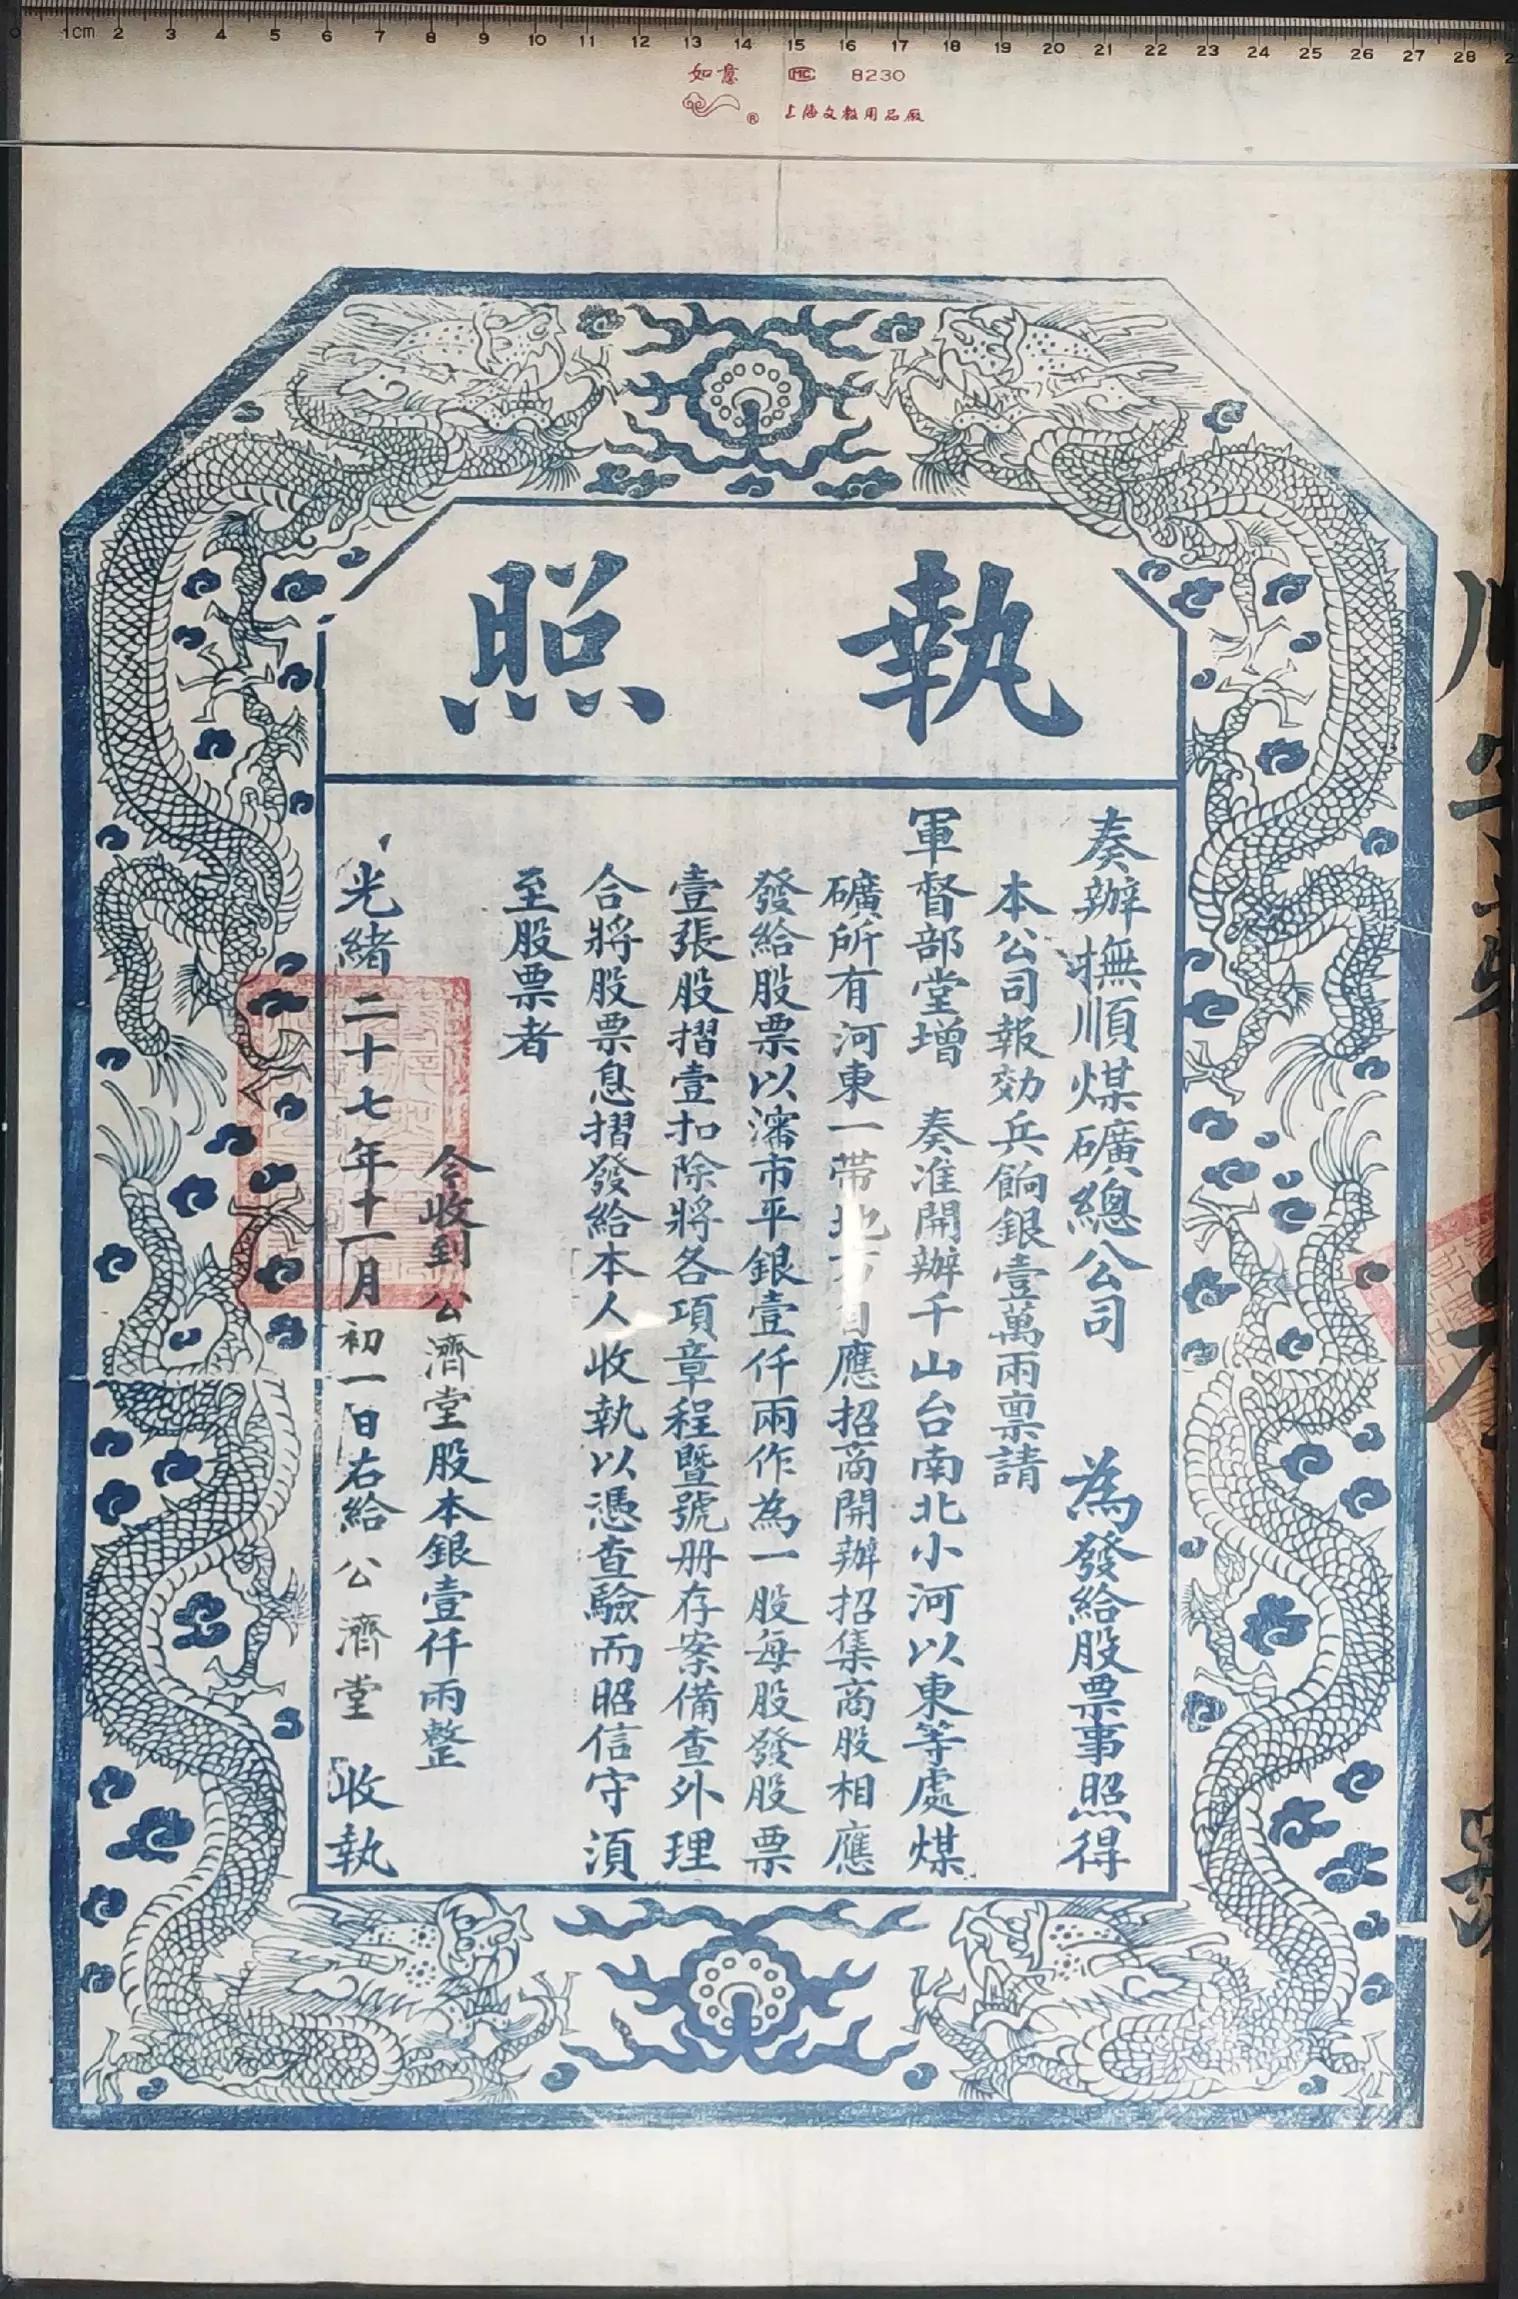 1cm 2 3 4 5 6 7 8 9 10 11 12 13 14 15 16 17 18 19 20 21 22 23 24 25 26 27 28
如意 MC 8230
® 上海文教用品廠
執照
奏辦撫順煤礦總公司 為發給股票事照得
本公司報効兵餉銀壹萬兩禀請
軍督部堂增 奏准開辦千山台南北小河以東等處煤
礦所有河東一帶地方自應招商開辦招集商股相應
發給股票以瀋市平銀壹仟兩作為一股每股發股票
壹張股摺壹扣除將各項章程暨號册存案備查外理
合將股票息摺發給本人收執以憑查驗而昭信守須
至股票者
今收到公濟堂股本銀壹仟兩整
光緒二十七年十一月初一日右給公濟堂收執